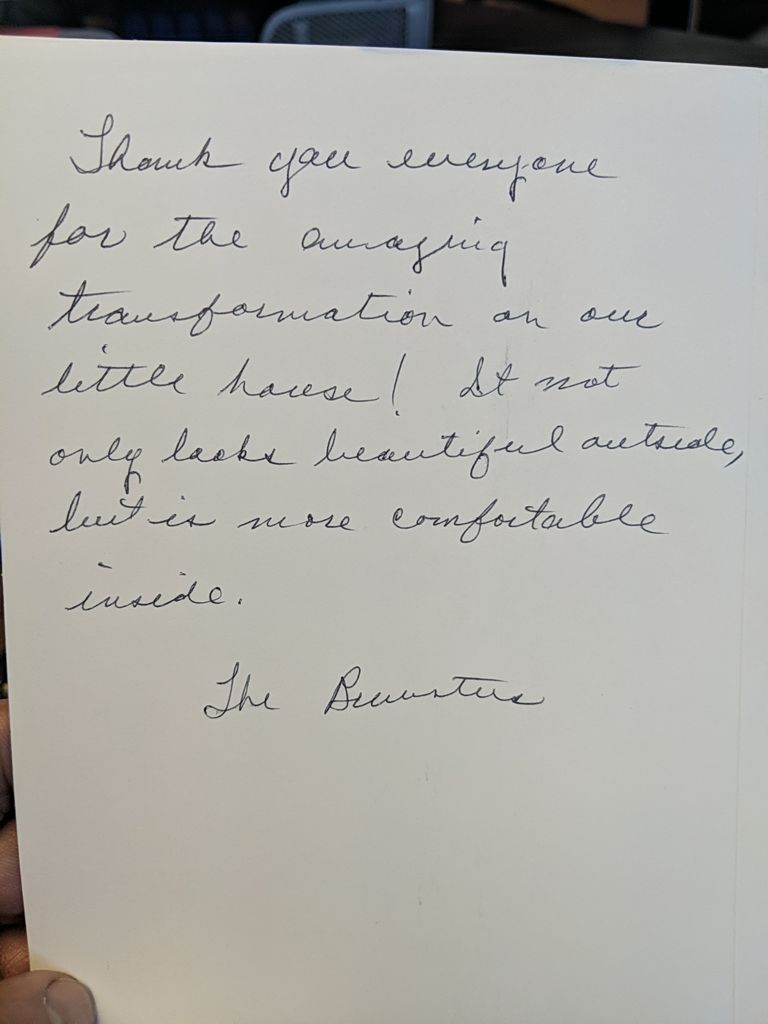 Thank you everyone
for the amazing
transformation on our
little house! It not
only looks beautiful outside,
but is more comfortable
inside.
The Brewsters